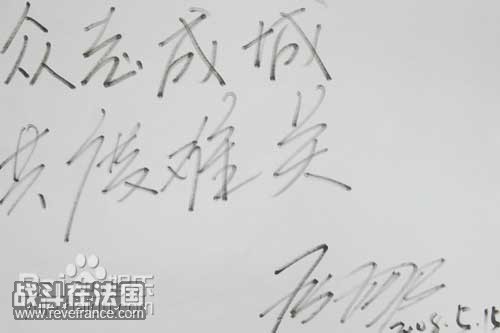 众志成城
共度难关
2008.5.15
战斗在法国
www.revefrance.com